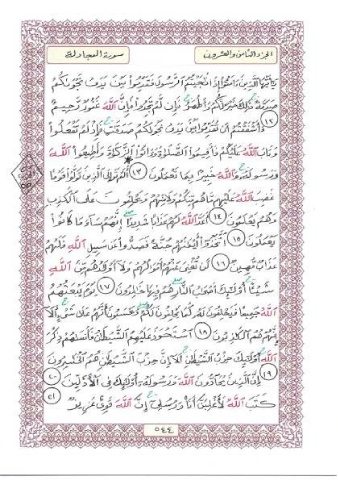 الجزء الثامن والعشرون
سورة المجادلة
يَٰٓأَيُّهَا ٱلَّذِينَ ءَامَنُوٓا۟ إِذَا نَٰجَيْتُمُ ٱلرَّسُولَ فَقَدِّمُوا۟ بَيْنَ يَدَىْ نَجْوَىٰكُمْ
صَدَقَةً ذَٰلِكَ خَيْرٌ لَّكُمْ وَأَطْهَرُ فَإِن لَّمْ تَجِدُوا۟ فَإِنَّ ٱللَّهَ غَفُورٌ رَّحِيمٌ
١٢ ءَأَشْفَقْتُمْ أَن تُقَدِّمُوا۟ بَيْنَ يَدَىْ نَجْوَىٰكُمْ صَدَقَٰتٍ فَإِذْ لَمْ تَفْعَلُوا۟
وَتَابَ ٱللَّهُ عَلَيْكُمْ فَأَقِيمُوا۟ ٱلصَّلَوٰةَ وَءَاتُوا۟ ٱلزَّكَوٰةَ وَأَطِيعُوا۟ ٱللَّهَ
وَرَسُولَهُۥ وَٱللَّهُ خَبِيرٌۢ بِمَا تَعْمَلُونَ ١٣ أَلَمْ تَرَ إِلَى ٱلَّذِينَ تَوَلَّوْا۟ قَوْمًا
غَضِبَ ٱللَّهُ عَلَيْهِم مَّا هُم مِّنكُمْ وَلَا مِنْهُمْ وَيَحْلِفُونَ عَلَى ٱلْكَذِبِ
وَهُمْ يَعْلَمُونَ ١٤ أَعَدَّ ٱللَّهُ لَهُمْ عَذَابًا شَدِيدًا إِنَّهُمْ سَآءَ مَا كَانُوا۟
يَعْمَلُونَ ١٥ ٱتَّخَذُوٓا۟ أَيْمَٰنَهُمْ جُنَّةً فَصَدُّوا۟ عَن سَبِيلِ ٱللَّهِ فَلَهُمْ
عَذَابٌ مُّهِينٌ ١٦ لَّن تُغْنِىَ عَنْهُمْ أَمْوَٰلُهُمْ وَلَآ أَوْلَٰدُهُم مِّنَ ٱللَّهِ
شَيْـًٔا أُو۟لَٰٓئِكَ أَصْحَٰبُ ٱلنَّارِ هُمْ فِيهَا خَٰلِدُونَ ١٧ يَوْمَ يَبْعَثُهُمُ
ٱللَّهُ جَمِيعًا فَيَحْلِفُونَ لَهُۥ كَمَا يَحْلِفُونَ لَكُمْ وَيَحْسَبُونَ أَنَّهُمْ عَلَىٰ شَىْءٍ أَلَآ
إِنَّهُمْ هُمُ ٱلْكَٰذِبُونَ ١٨ ٱسْتَحْوَذَ عَلَيْهِمُ ٱلشَّيْطَٰنُ فَأَنسَىٰهُمْ ذِكْرَ
ٱللَّهِ أُو۟لَٰٓئِكَ حِزْبُ ٱلشَّيْطَٰنِ أَلَآ إِنَّ حِزْبَ ٱلشَّيْطَٰنِ هُمُ ٱلْخَٰسِرُونَ
١٩ إِنَّ ٱلَّذِينَ يُحَآدُّونَ ٱللَّهَ وَرَسُولَهُۥٓ أُو۟لَٰٓئِكَ فِى ٱلْأَذَلِّينَ ٢٠
كَتَبَ ٱللَّهُ لَأَغْلِبَنَّ أَنَا۠ وَرُسُلِىٓ إِنَّ ٱللَّهَ قَوِىٌّ عَزِيزٌ ٢١
٥٤٤